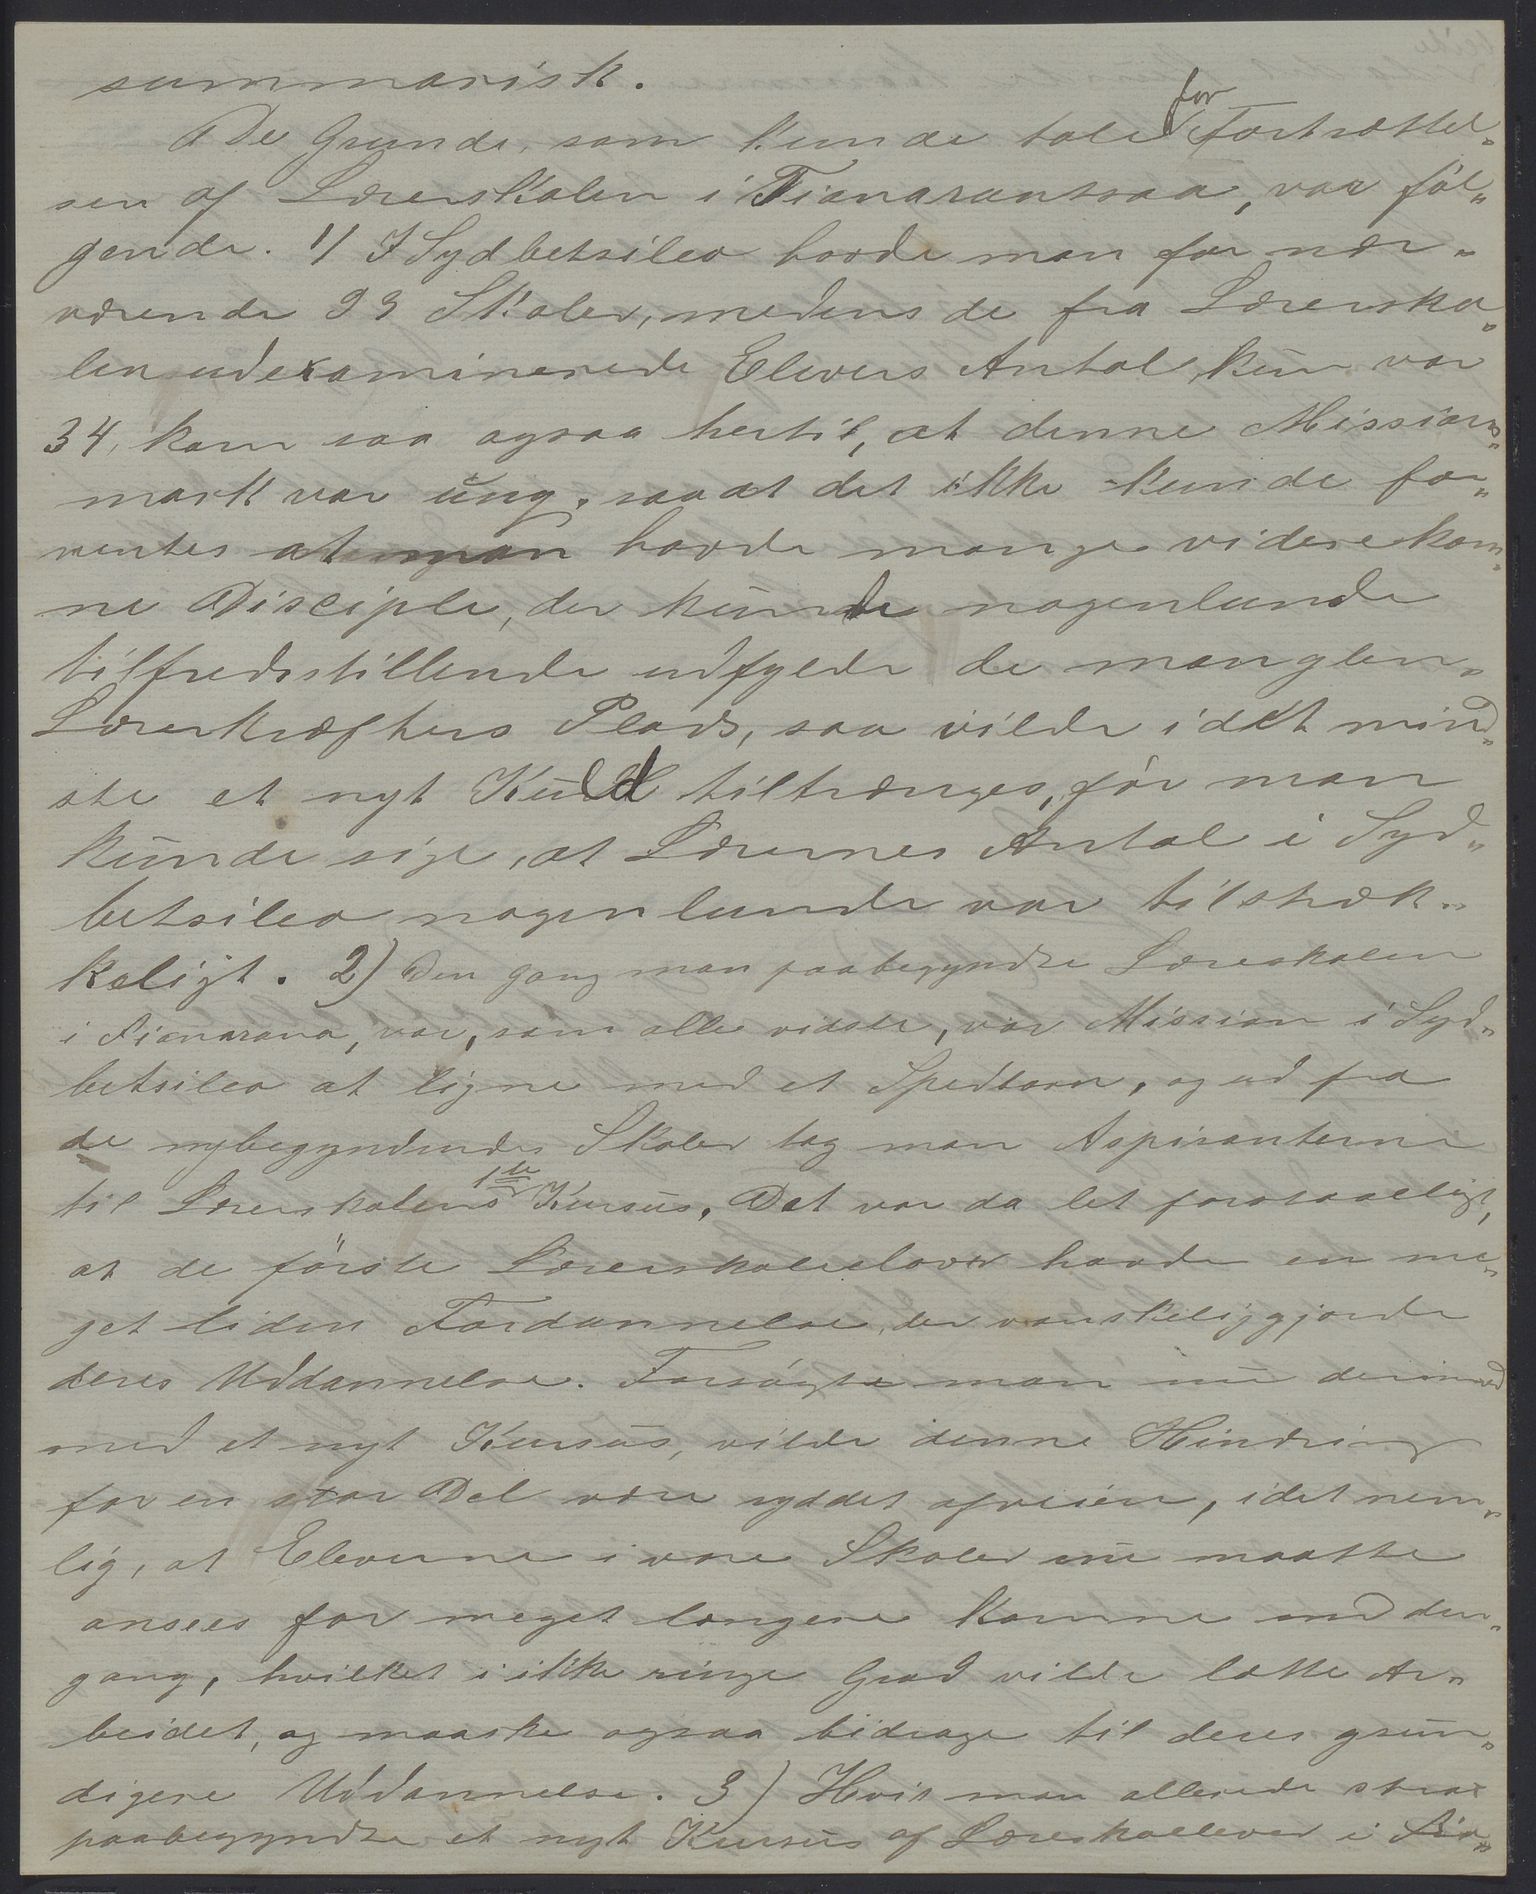 summarisk.
De Grunde, som kunde tale for Fortsættel-
sen af Lærerskolen i Fianarantsoa, var föl-
gende. 1) I Sydbetsileo havde man for nær-
værende 93 Skoler, medens de fra Lærersko-
len udexaminerede Elevers Antal kun var
34, kom saa ogsaa hertil, at denne Missions-
mark var ung, saa at det ikke kunde for-
ventes at man havde mange viderekom-
ne Disciple, der kunde nogenlunde
tilfredsstillende udfylde de manglen-
Lærerkræfters Plads, saa vilde i det mind-
ste et nyt Kuld tiltrænges, för man
kunde sige, at Lærernes Antal i Syd-
betsileo nogenlunde var tilstræk-
keligt. 2) Den gang man paabegyndte Læreskolen
i Fianarana, var, som alle vidste, vor Mission i Syd-
betsileo at ligne med et Spedbarn, og ud fra
de nybegyndende Skoler tog man Aspiranterne
til Lærerskolens 1ste Kursus. Det var da let forstaaeligt,
at de förste Lærerskoleelever havde en me-
get liden Fordannelse, der vanskeliggjorde
deres Uddannelse. Forsögte man nu derimod
med et nyt Kursus, vilde denne Hindring
for en stor Del være ryddet afveien, idet nem-
lig, at Eleverne i vore Skoler nu maatte
ansees for meget længere komne end den-
gang, hvilket i ikke ringe Grad vilde lette Ar-
beidet, og maaske ogsaa bidrage til deres grun-
digere Uddannelse. 3) Hvis man allerede strax
paabegyndte et nyt Kursus af Læreskoleelever i Fia-